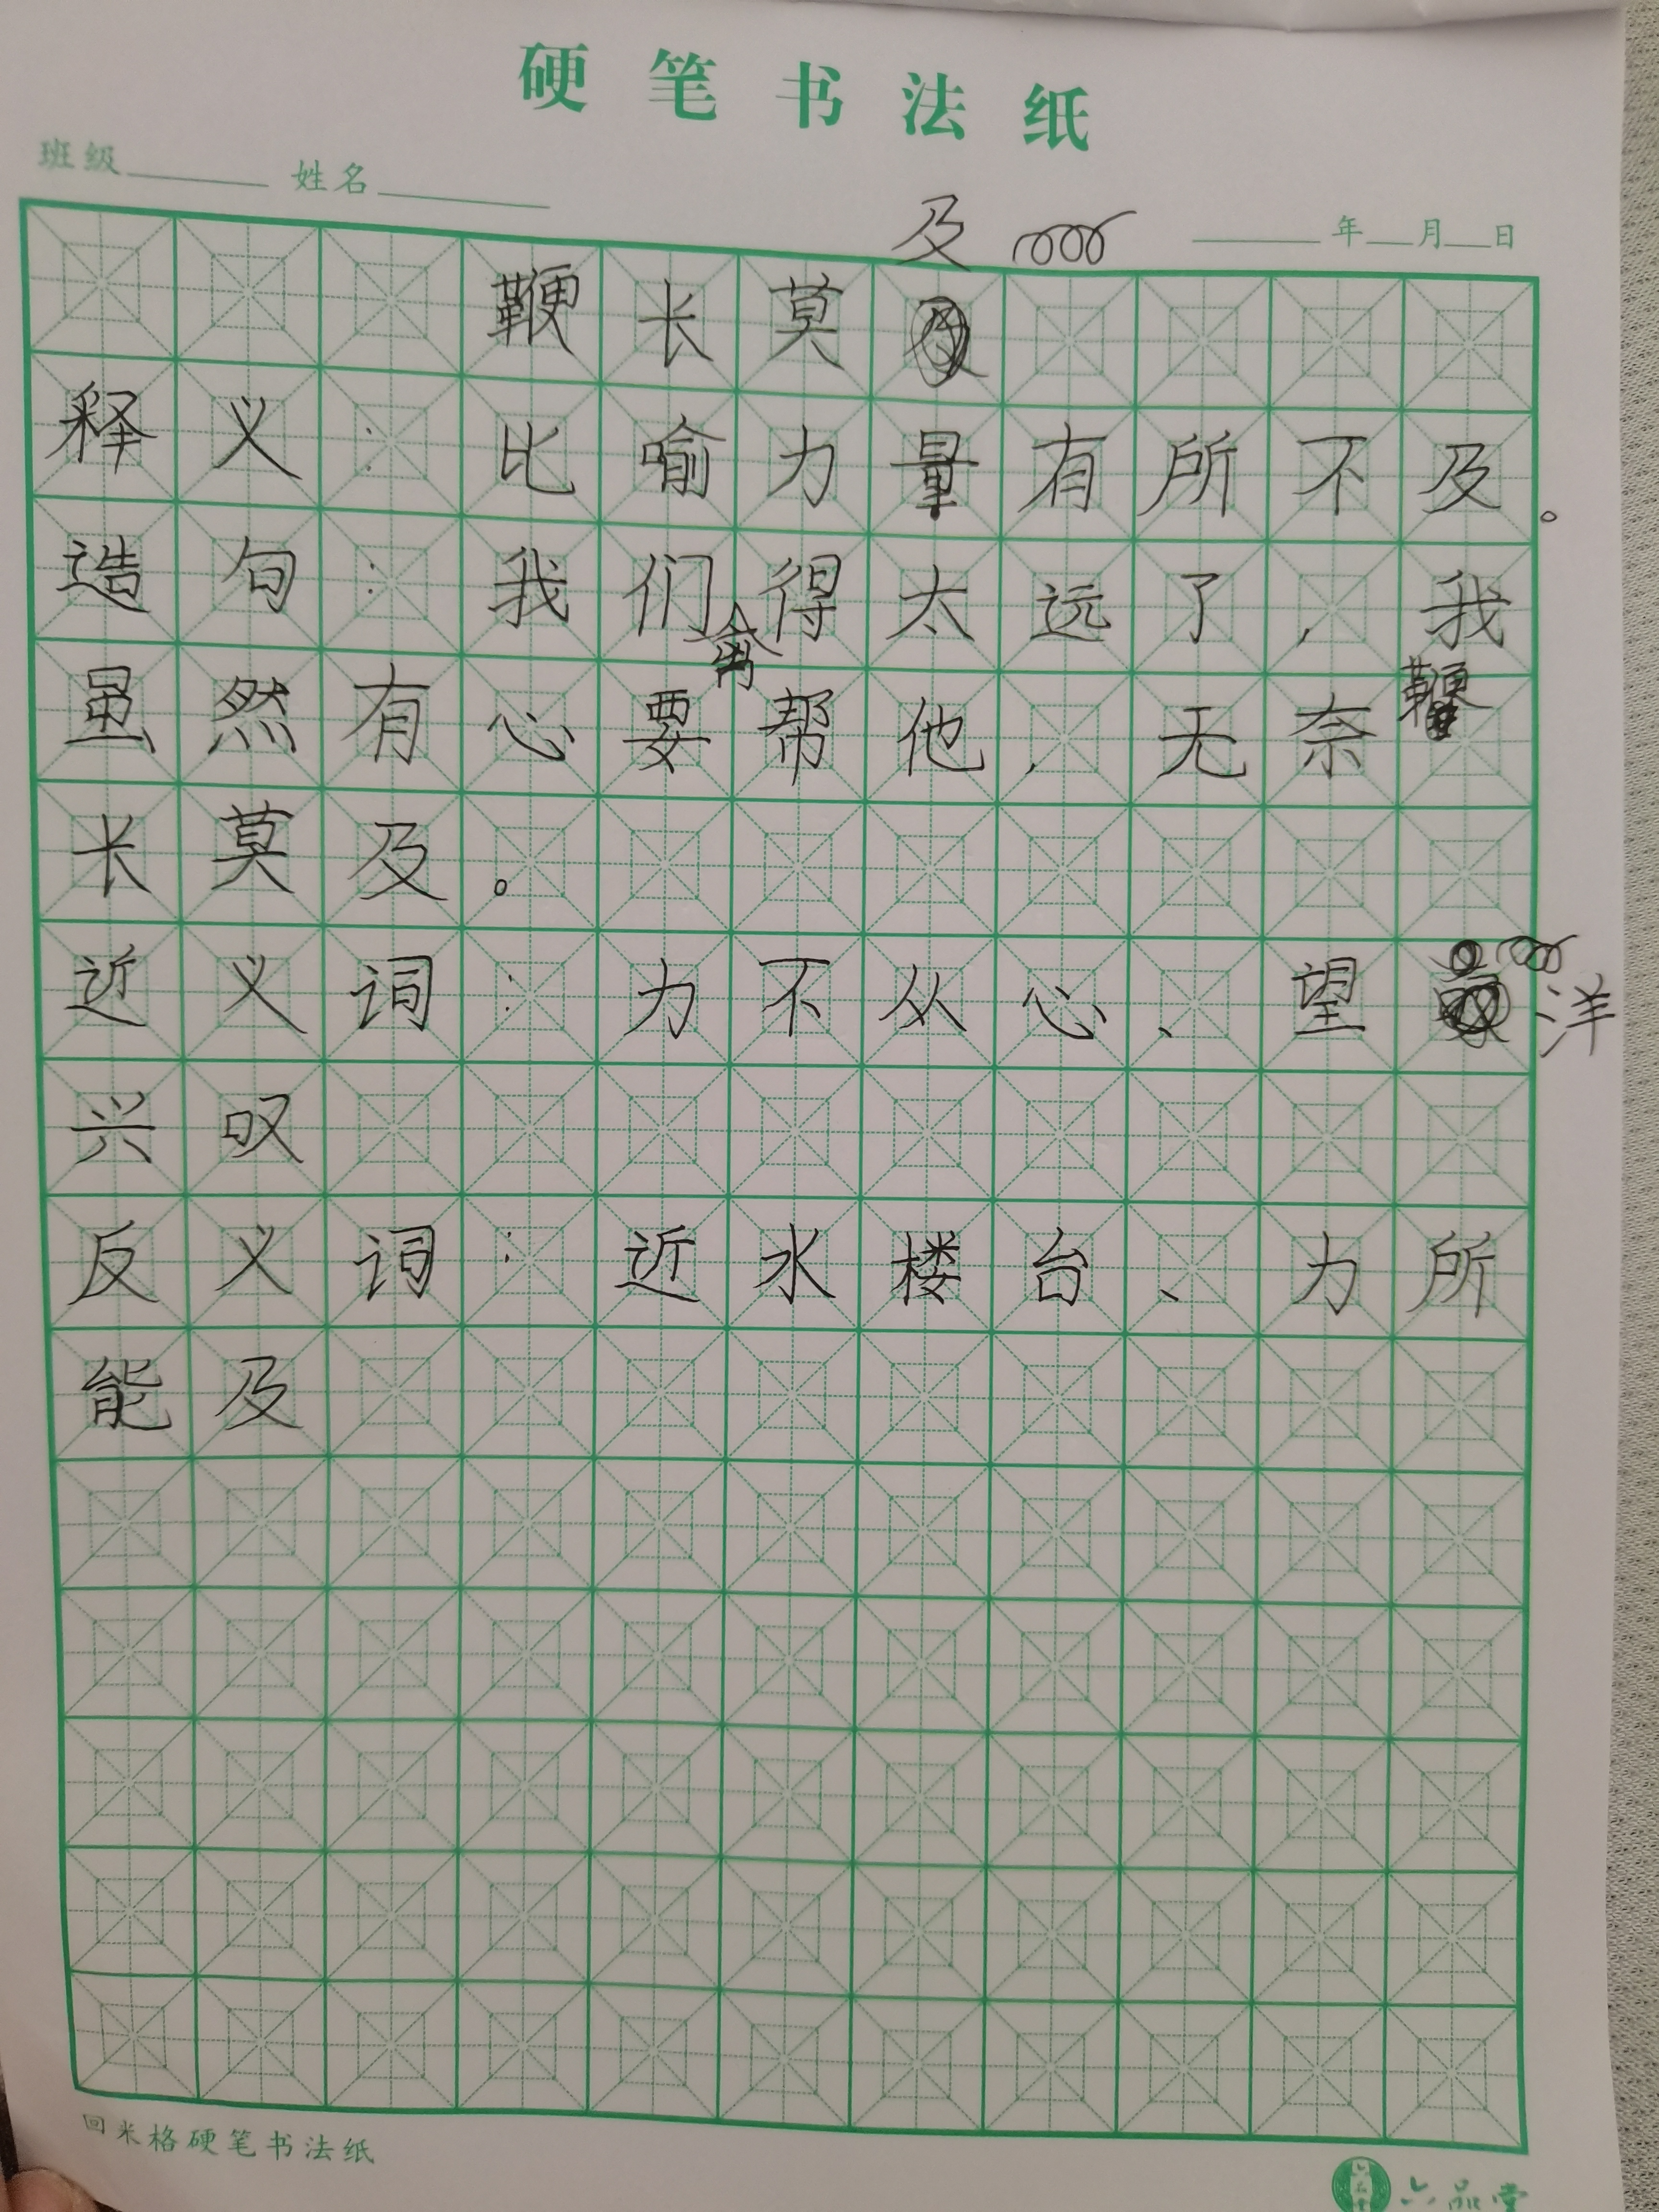 硬笔书法纸
班级 姓名 年 月 日
鞭长莫及
释义：比喻力量有所不及。
造句：我们离得太远了，我
虽然有心要帮他，无奈鞭
长莫及。
近义词：力不从心、望洋
兴叹
反义词：近水楼台、力所
能及
回米格硬笔书法纸
六品堂